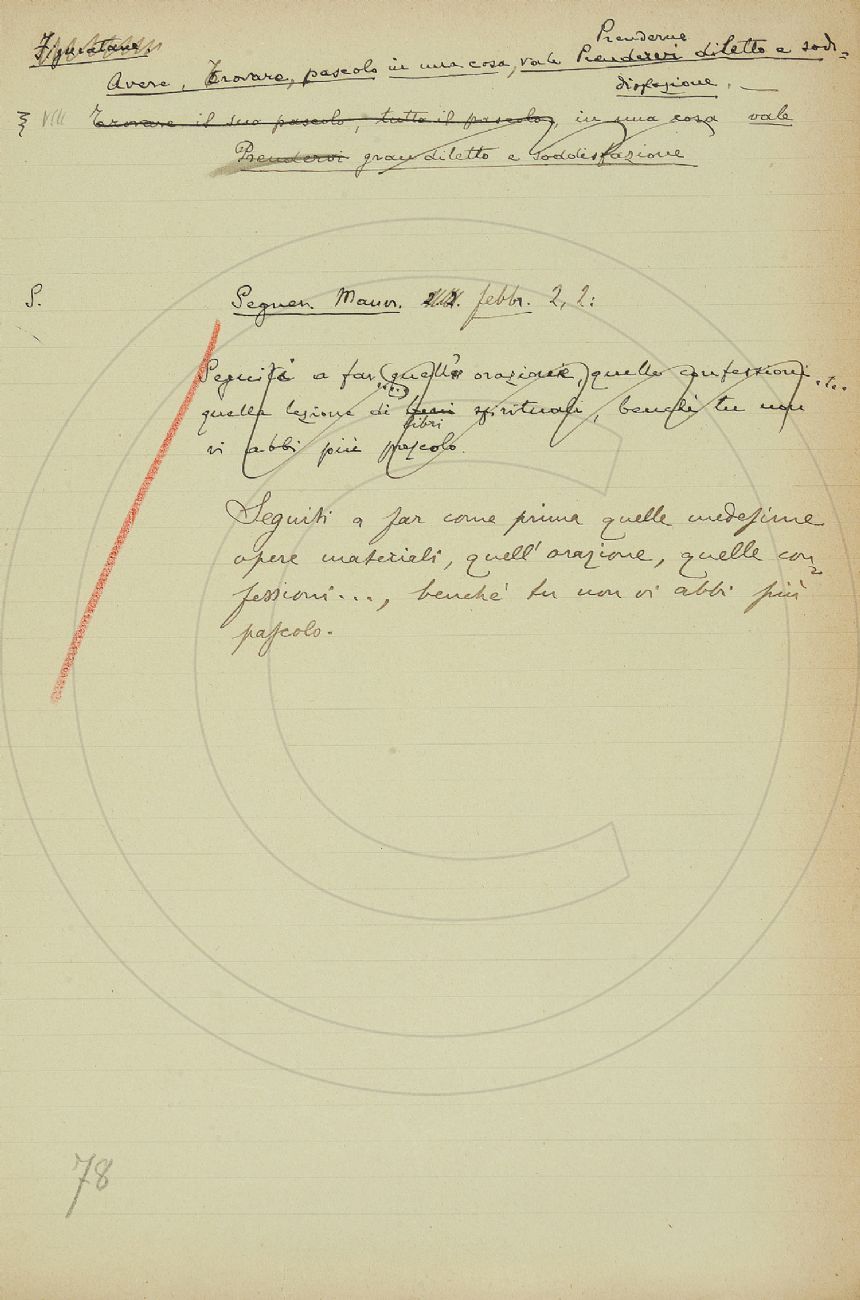 Figuratam.
Prenderne
Avere, Trovare, pascolo in una cosa, vale Prendervi diletto e sod-
disfazione. —
§ VIII Trovare il suo pascolo, tutto il pascolo, in una cosa vale
Prendervi gran diletto e soddisfazione
S. Segner. Mann. febbr. 2, 2:
Seguiti a far quell' orazione, quelle confessioni....
quella lezione di beni spirituali, benchè tu non
libri
vi abbi più pascolo.
Seguiti a far come prima quelle medesime
opere materiali, quell' orazione, quelle con-
fessioni..., benchè tu non vi abbi più
pascolo.
78